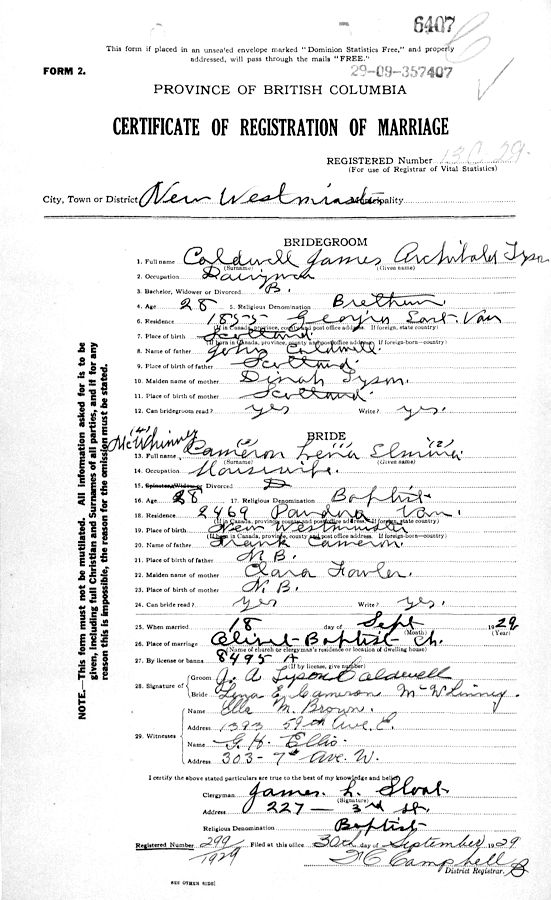 6407
This form if placed in an unsealed envelope marked "Dominion Statistics Free," and properly
addressed, will pass through the mails "FREE."
FORM 2.
29-09-357407
PROVINCE OF BRITISH COLUMBIA
CERTIFICATE OF REGISTRATION OF MARRIAGE
REGISTERED Number 29
(For use of Registrar of Vital Statistics)
City, Town or District New Westminster Municipality
BRIDEGROOM
1. Full name Caldwell James Archibald Tyson
(Surname) (Given name)
2. Occupation Dairyman
3. Bachelor, Widower or Divorced B.
4. Age 28 5. Religious Denomination Brethren
6. Residence 1855 Georgia East. Van
(If in Canada, province, county and post office address. If foreign, state country)
7. Place of birth Scotland
(If born in Canada, province, county and post office address. If foreign-born—country)
8. Name of father John Caldwell.
9. Place of birth of father Scotland
10. Maiden name of mother Dinah Tyson.
11. Place of birth of mother Scotland.
12. Can bridegroom read? yes Write? yes.
BRIDE
McWhinney (4)
13. Full name Cameron Lena (1) Elmina (2)
(Surname) (Given name)
14. Occupation Housewife.
15. Spinster, Widow or Divorced D
16. Age 28 17. Religious Denomination Baptist
18. Residence 2469 Pandora Van.
(If in Canada, province, county and post office address. If foreign, state country)
19. Place of birth New Westminster
(If born in Canada, province, county and post office address. If foreign-born—country)
20. Name of father Frank Cameron.
21. Place of birth of father N.B.
22. Maiden name of mother Clara Fowler.
23. Place of birth of mother N.B.
24. Can bride read? yes Write? yes.
25. When married 18 day of Sept 1929
(Month) (Year)
26. Place of marriage Olivet Baptist Ch.
(Name of church or clergyman's residence or location of dwelling house)
27. By license or banns 8495 A
(If by license, give number)
28. Signature of Groom J. A Tyson Caldwell
Bride Lena E. Cameron McWhinney.
29. Witnesses Name Ella M. Brown.
Address 1393 59th Ave. E.
Name G. H. Ellis
Address 303- 7th Ave. W.
I certify the above stated particulars are true to the best of my knowledge and belief
Clergyman James L. Sloat
(Signature)
Address 227 — 3rd St.
Religious Denomination Baptist
Registered Number 299/1929 Filed at this office 30th day of September 1929
Campbell
District Registrar.
SEE OTHER SIDE
NOTE.—This form must not be mutilated. All information asked for is to be
given, including full Christian and Surnames of all parties, and if for any
reason this is impossible, the reason for the omission must be stated.